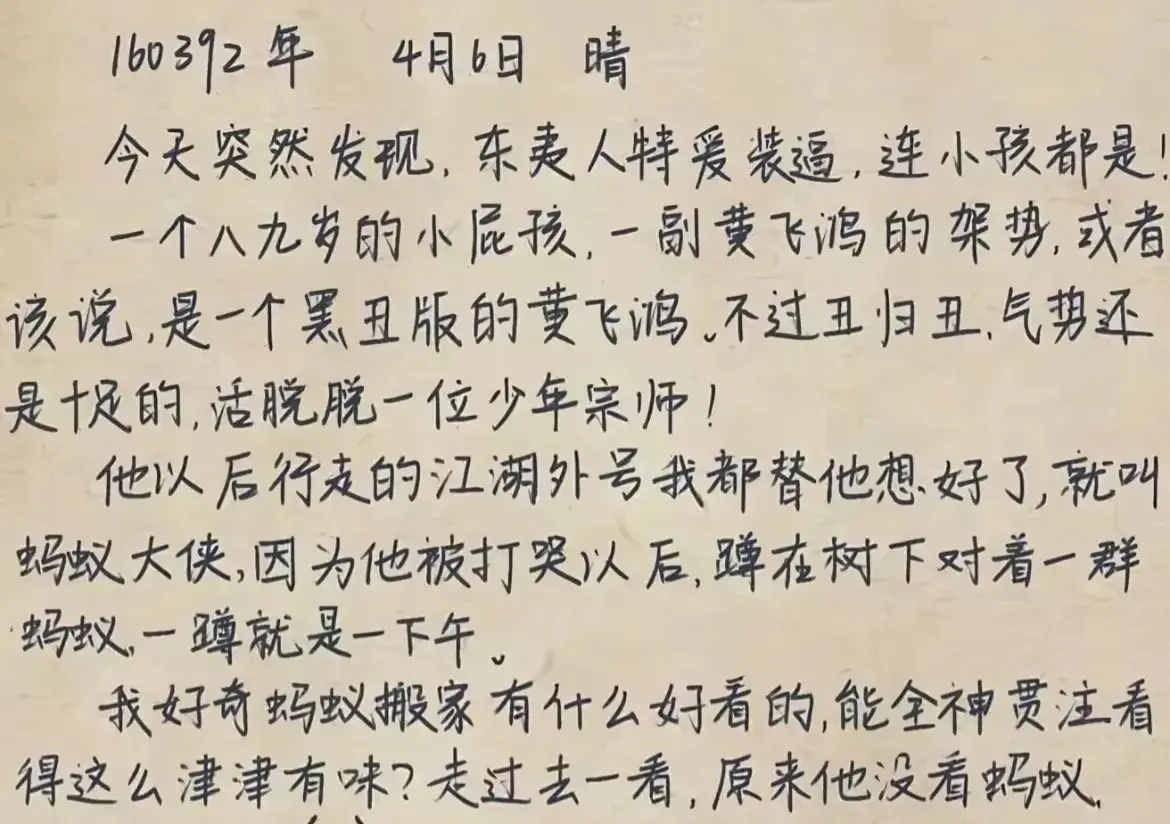 160392年 4月6日 晴
今天突然发现,东夷人特爱装逼,连小孩都是!
一个八九岁的小屁孩,一副黄飞鸿的架势,或者
该说,是一个黑丑版的黄飞鸿。不过丑归丑,气势还
是十足的,活脱脱一位少年宗师!
他以后行走的江湖外号我都替他想好了,就叫
蚂蚁大侠,因为他被打哭以后,蹲在树下对着一群
蚂蚁,一蹲就是一下午。
我好奇蚂蚁搬家有什么好看的,能全神贯注看
得这么津津有味?走过去一看,原来他没看蚂蚁,